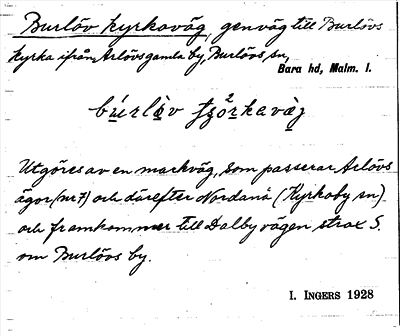 Burlöv kyrkoväg, genväg till Burlövs
kyrka ifrån Arlövsgamla by, Burlövs sn,
Bara hd, Malm. l.
Utgöres av en markväg, som passerar Arlövs
ägor (nr 7) och därefter Nordanå (Kyrkoby sn)
och framkommer till Dalbyvägen strax S.
om Burlövs by.
I. INGERS 1928